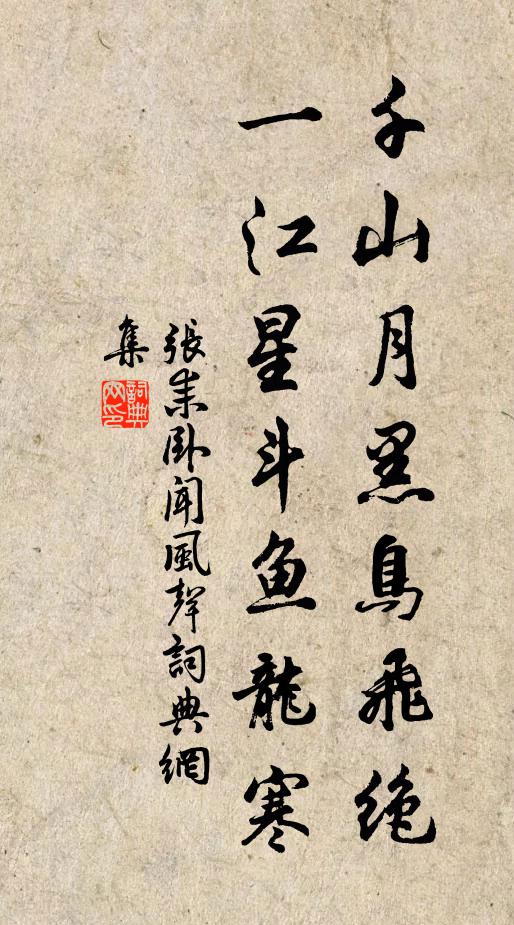 千山月黑鳥飛絶
一江星斗魚龍寒
張耒卧聞風聲詞典網
集
詞典網印